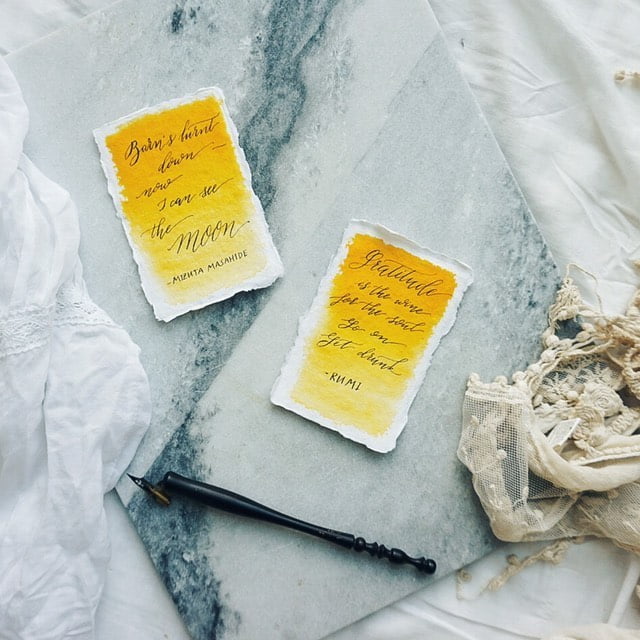 Barn's burnt
down —
now
I can see
the moon.
- MIZUTA MASAHIDE
Gratitude
is the wine
for the soul
Go on
Get drunk
- RUMI